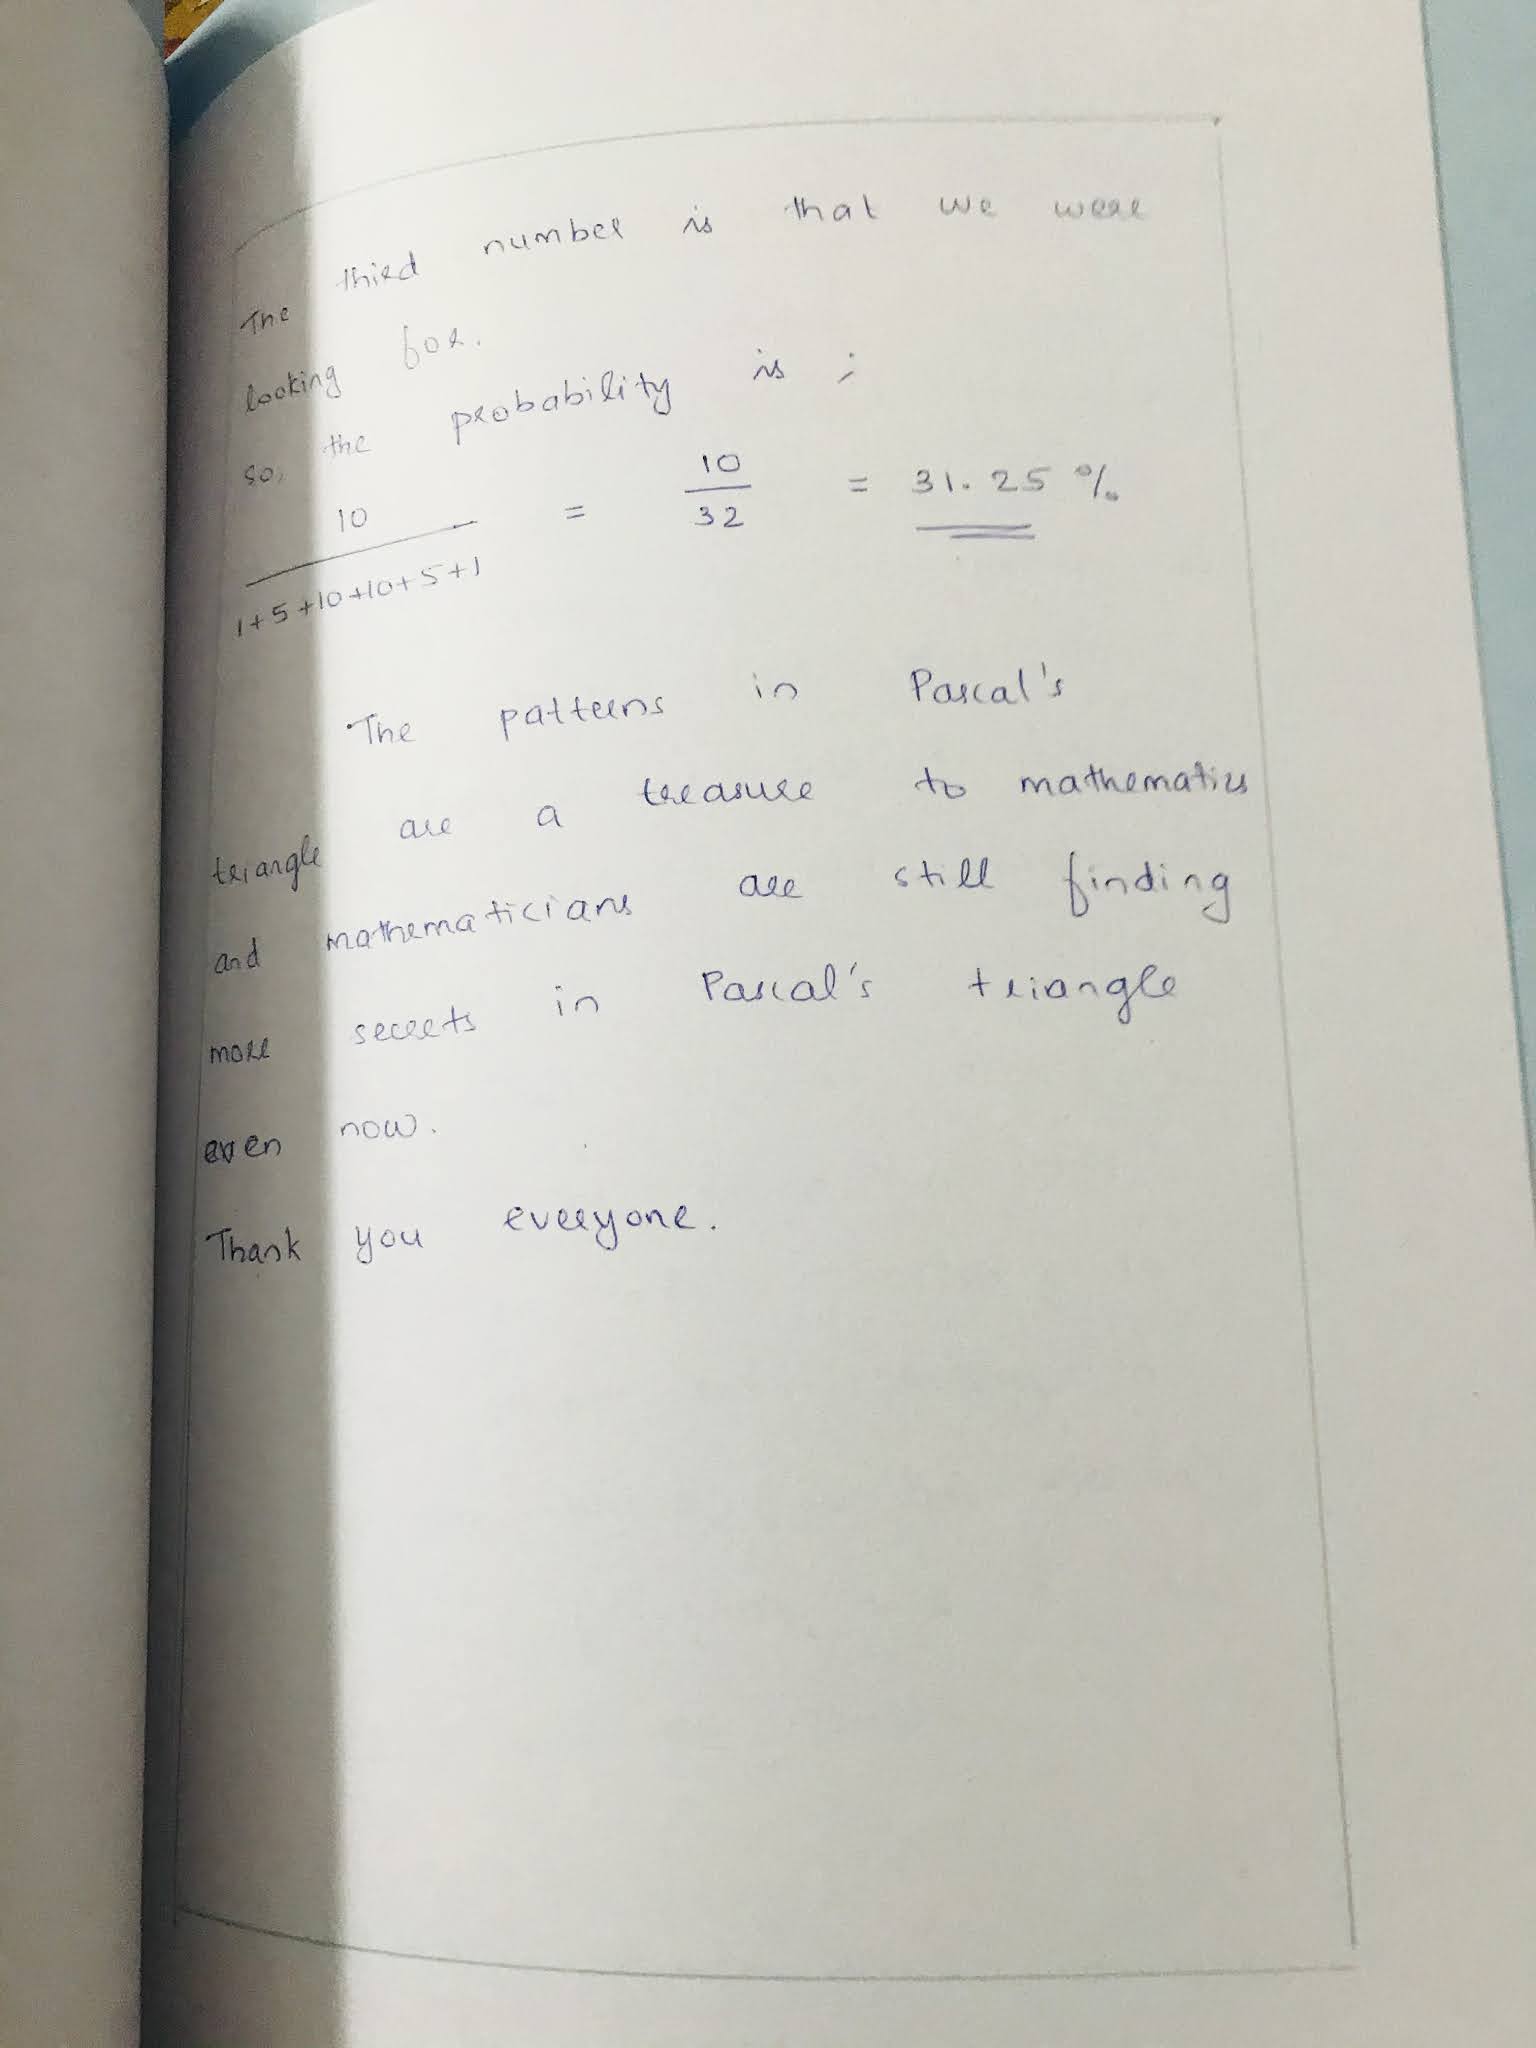 The third number is that we were
looking for.
so, the probability is ;
10 / 1+5+10+10+5+1 = 10 / 32 = 31.25 %
The patterns in Pascal's
triangle are a treasure to mathematics
and mathematicians are still finding
more secrets in Pascal's triangle
even now.
Thank you everyone.